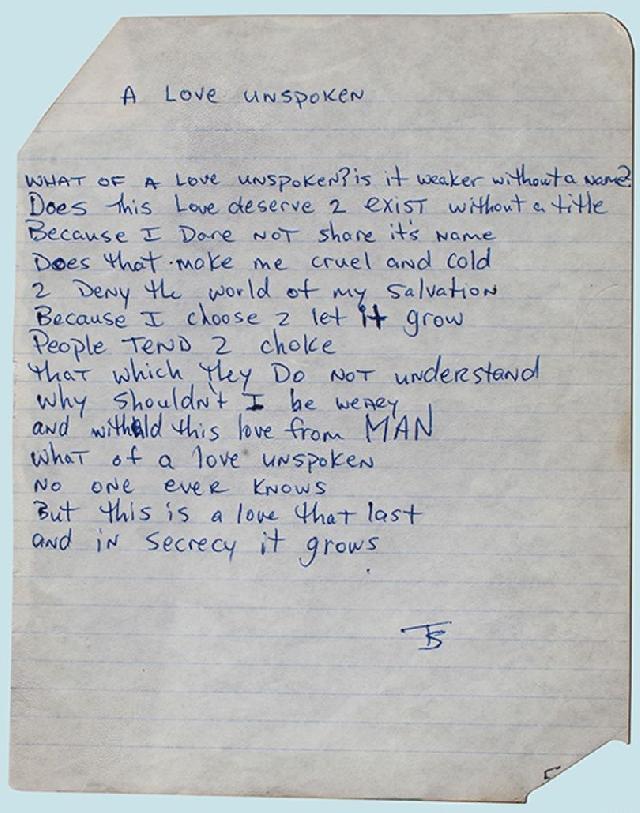 A Love UNSPOKEN
WHAT OF A Love UNSPOKEN? is it weaker without a name?
Does this Love deserve 2 exist without a title
Because I Dare NOT share it's Name
Does that make me cruel and cold
2 Deny the world of my Salvation
Because I choose 2 let it grow
People TEND 2 choke
that which they Do NOT understand
Why shouldn't I be weary
and withhold this love from MAN
What of a love unspoken
No one ever knows
But this is a love that last
and in secrecy it grows